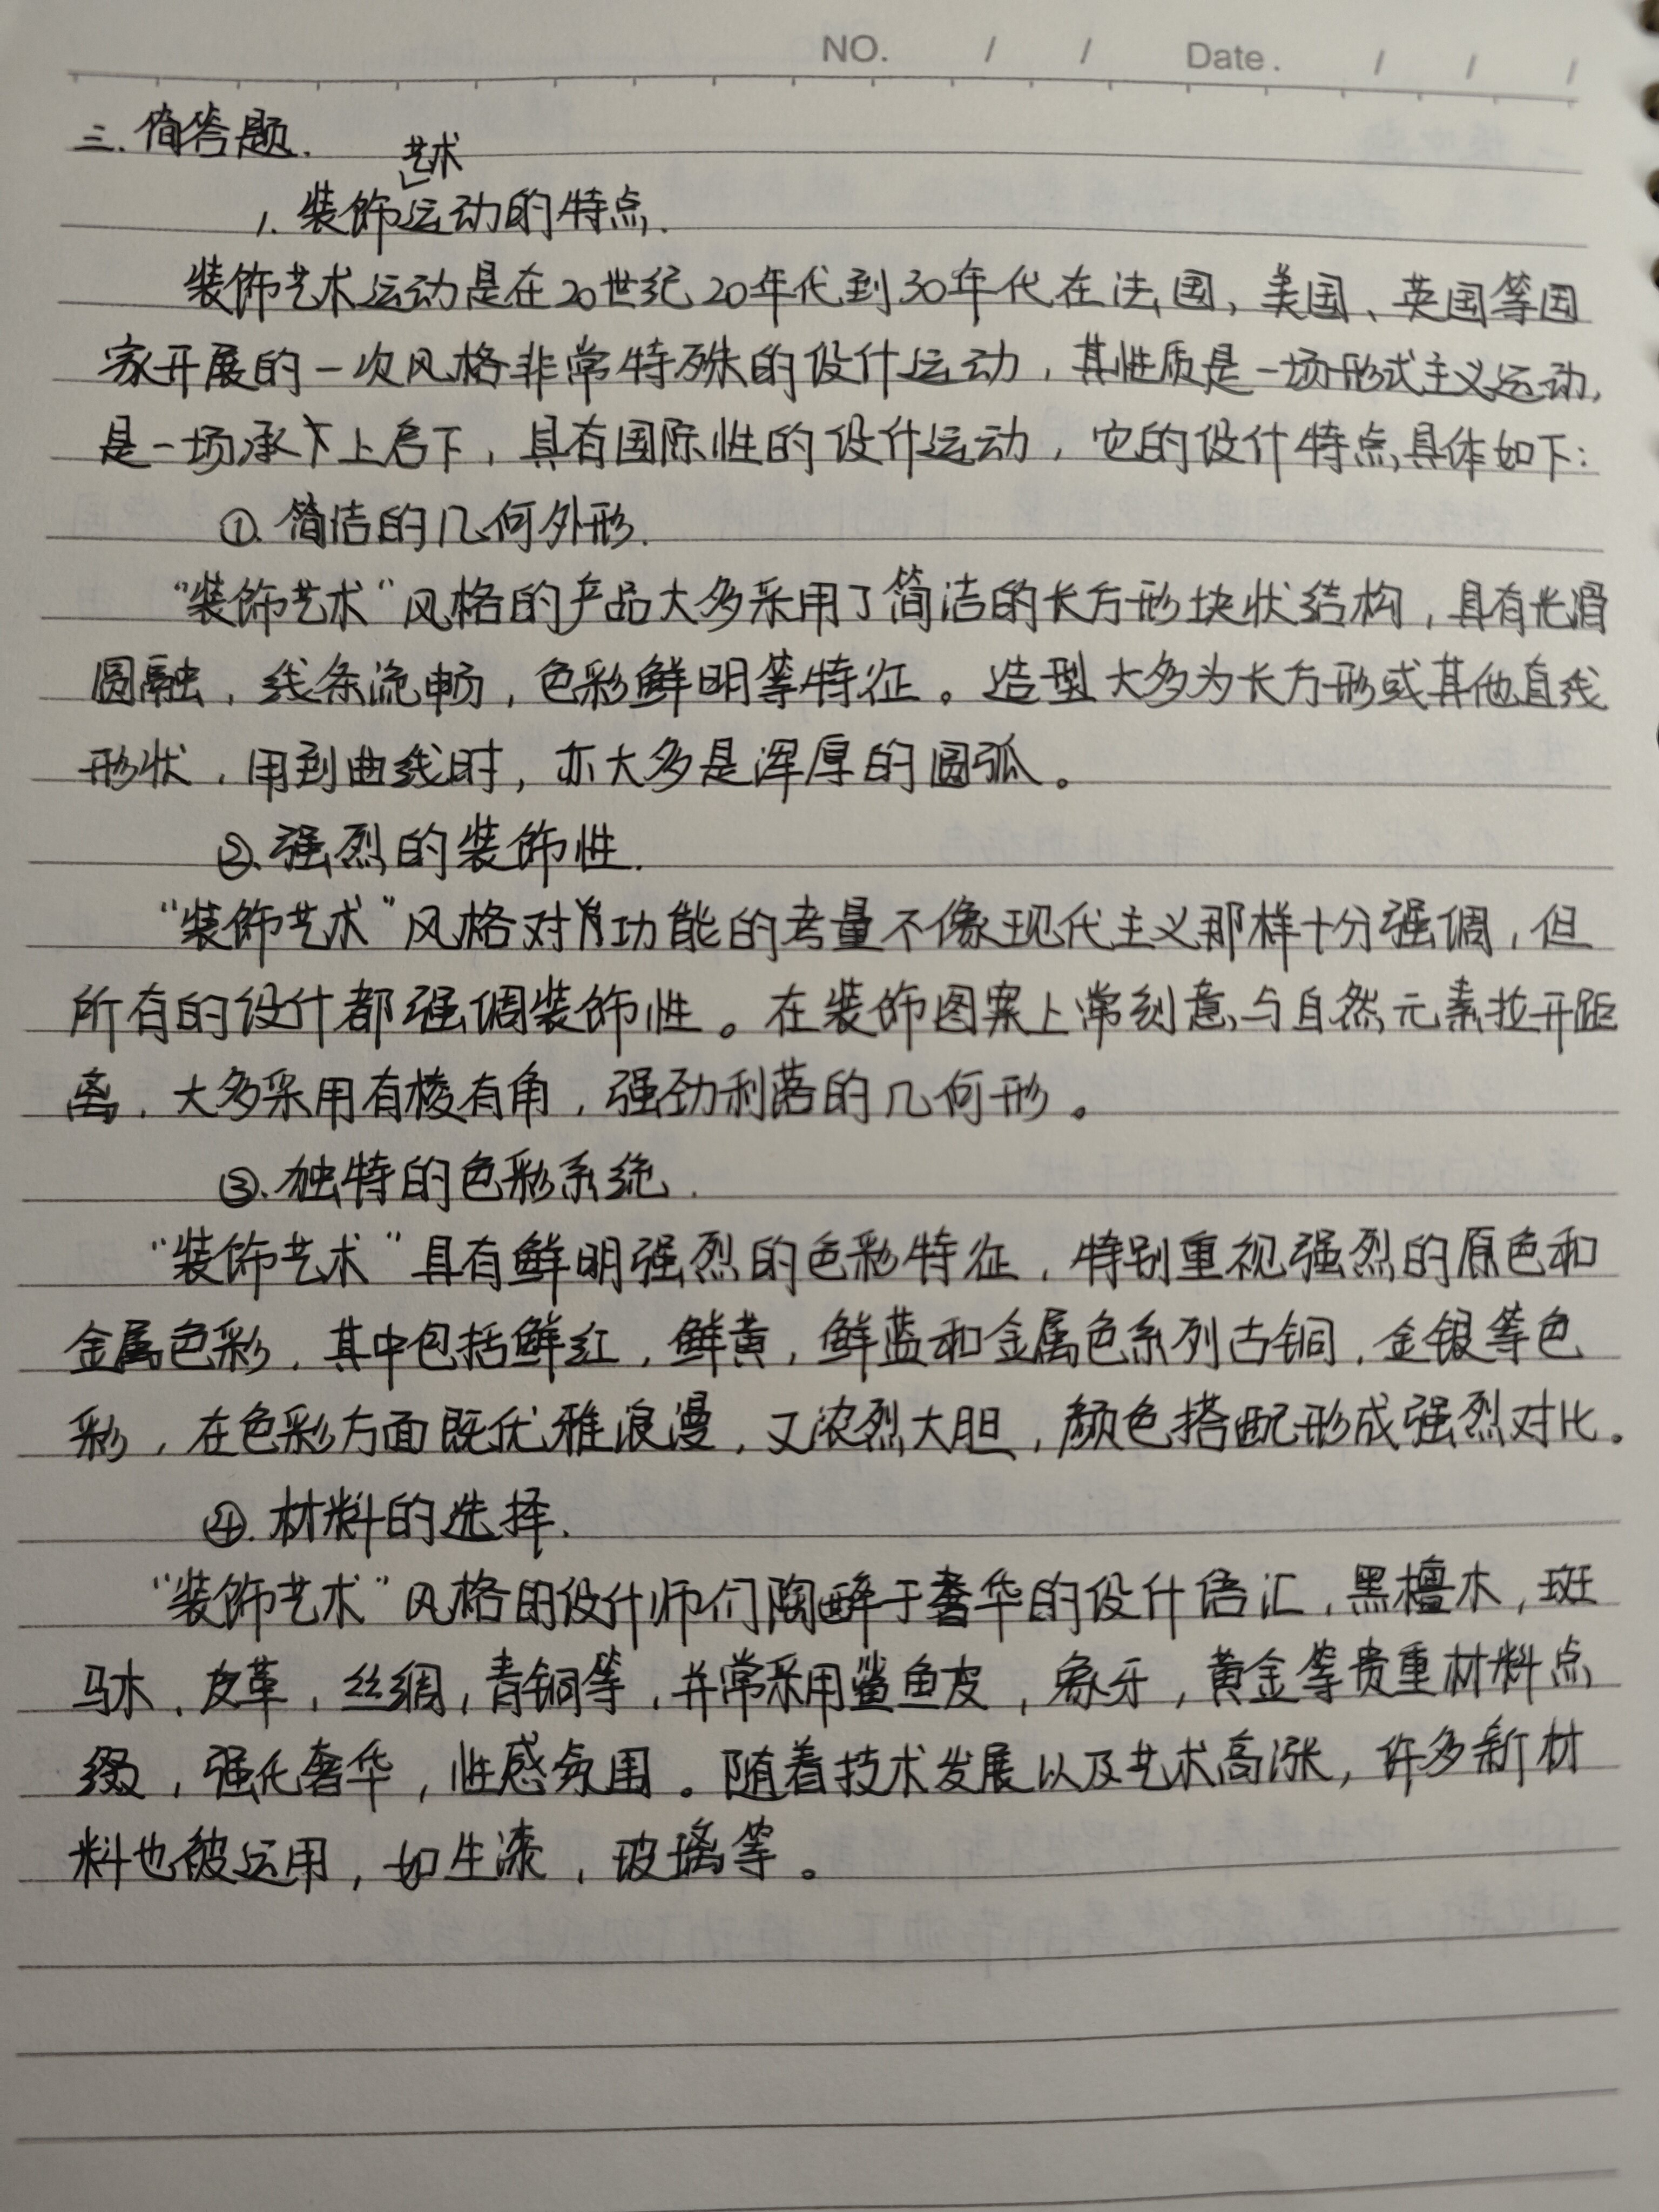 NO. / / Date. / / /
三.简答题.
1.装饰艺术运动的特点.
装饰艺术运动是在20世纪20年代到30年代在法国、美国、英国等国
家开展的一次风格非常特殊的设计运动,其性质是一场形式主义运动,
是一场承下上启下,具有国际性的设计运动,它的设计特点具体如下:
①.简洁的几何外形.
“装饰艺术”风格的产品大多采用了简洁的长方形块状结构,具有光滑
圆融,线条流畅,色彩鲜明等特征。造型大多为长方形或其他直线
形状,用到曲线时,亦大多是浑厚的圆弧。
②.强烈的装饰性.
“装饰艺术”风格对功能的考量不像现代主义那样十分强调,但
所有的设计都强调装饰性。在装饰图案上常刻意与自然元素拉开距
离,大多采用有棱有角,强劲利落的几何形。
③.独特的色彩系统.
“装饰艺术”具有鲜明强烈的色彩特征,特别重视强烈的原色和
金属色彩,其中包括鲜红,鲜黄,鲜蓝和金属色系列古铜,金银等色
彩,在色彩方面既优雅浪漫,又浓烈大胆,颜色搭配形成强烈对比。
④.材料的选择.
“装饰艺术”风格的设计师们陶醉于奢华的设计语汇,黑檀木,斑
马木,皮革,丝绸,青铜等,并常采用鲨鱼皮,象牙,黄金等贵重材料点
缀,强化奢华,性感氛围。随着技术发展以及艺术高涨,许多新材
料也被运用,如生漆,玻璃等。